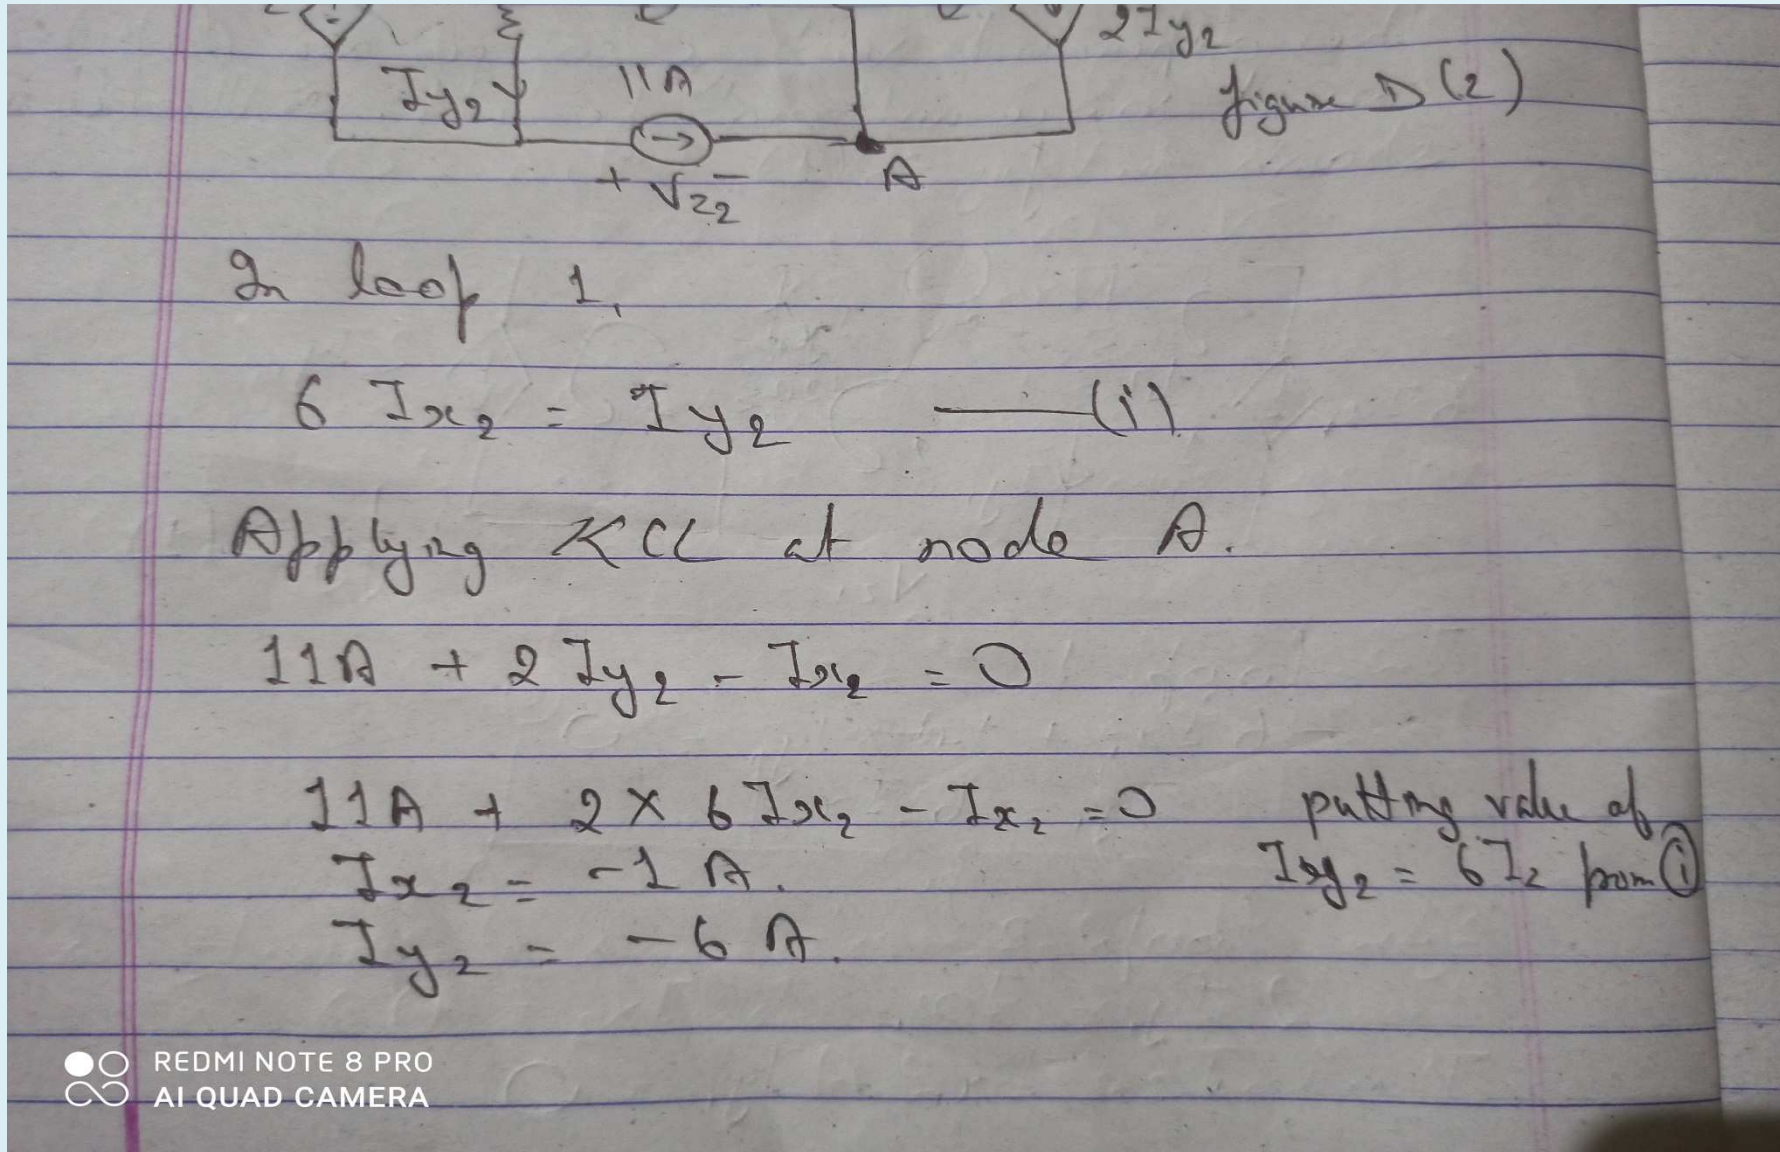 2Iy2
Iy2
11A
figure D (2)
+ Vz2 -
A
In loop 1,
6 Ix2 = Iy2 —(i)
Applying KCL at node A.
11A + 2 Iy2 - Ix2 = 0
11A + 2 × 6 Ix2 - Ix2 = 0 putting value of
Ix2 = -1 A. Iy2 = 6I2 from (i)
Iy2 = -6 A.
REDMI NOTE 8 PRO
AI QUAD CAMERA